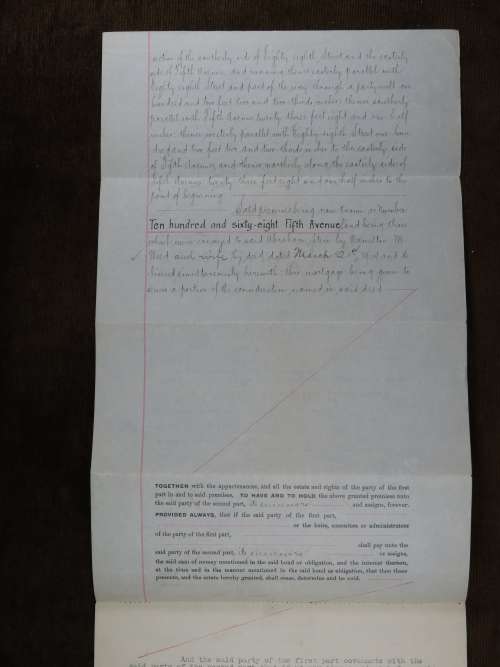 section of the southerly side of Eighty eighth Street and the easterly
side of Fifth Avenue and running thence easterly parallel with
Eighty eighth Street and part of the way through a party wall one
hundred and two feet two and two-thirds inches thence southerly
parallel with Fifth Avenue twenty three feet eight and one half
inches thence westerly parallel with Eighty-eighth Street one hun-
dred and two feet two and two thirds inches to the easterly side
of Fifth Avenue and thence northerly along the easterly side of
Fifth Avenue twenty three feet eight and one half inches to the
point of beginning
Said premises being now known as Number
Ten hundred and sixty-eight Fifth Avenue, and being those
which were conveyed to said Abraham Stern by Hamilton M.
Weed and wife by deed dated March 21st, and de-
livered simultaneously herewith this mortgage being given to
secure a portion of the consideration named in said deed
TOGETHER with the appurtenances, and all the estate and rights of the party of the first
part in and to said premises. TO HAVE AND TO HOLD the above granted premises unto
the said party of the second part, its successors and assigns, forever.
PROVIDED ALWAYS, that if the said party of the first part,
or the heirs, executors or administrators
of the party of the first part,
shall pay unto the
said party of the second part, its successors or assigns,
the said sum of money mentioned in the said bond or obligation, and the interest thereon,
at the time and in the manner mentioned in the said bond or obligation, that then these
presents, and the estate hereby granted, shall cease, determine and be void.
And the said party of the first part covenants with the
said party of the second part